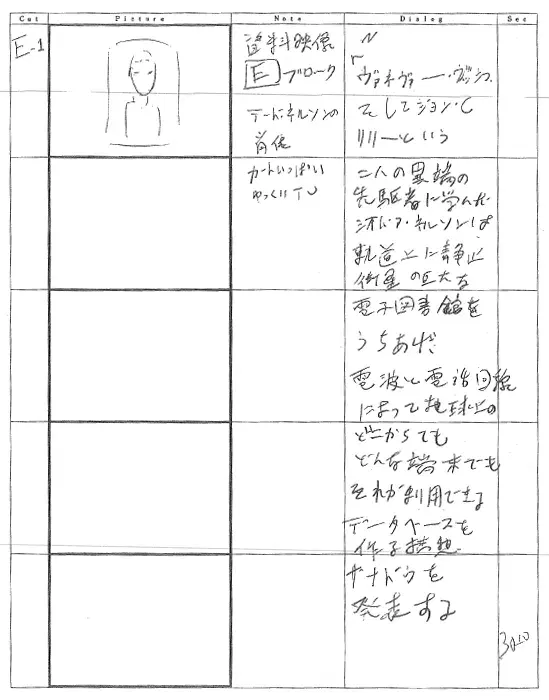 Cut Picture Note Dialog Sec
E-1
資料映像
E ブロック
テッド・ネルソンの
肖像
カットいっぱい
ゆっくりTU
N
「
ヴァネヴァー・ブッシュ
そしてジョン・C
リリーという
二人の異端の
先駆者に学んだ
シオドア・ネルソンは
軌道上に静止
衛星の巨大な
電子図書館を
うちあげ、
電波と電話回線
によって地球上の
どこからでも
どんな端末でも
それが利用できる
データベースを
作る構想
ザナドゥを
発表する